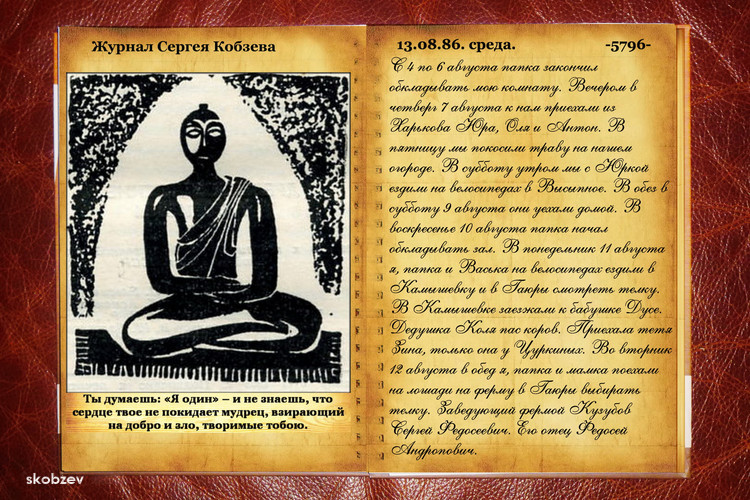 Журнал Сергея Кобзева
Ты думаешь: «Я один» – и не знаешь, что
сердце твое не покидает мудрец, взирающий
на добро и зло, творимые тобою.
13.08.86. среда. -5796-
С 4 по 6 августа папка закончил
обкладывать мою комнату. Вечером в
четверг 7 августа к нам приехали из
Харькова Юра, Оля и Антон. В
пятницу мы покосили траву на нашем
огороде. В субботу утром мы с Юркой
ездили на велосипедах в Высыпное. В обед в
субботу 9 августа они уехали домой. В
воскресенье 10 августа папка начал
обкладывать зал. В понедельник 11 августа
я, папка и Васька на велосипедах ездили в
Камышевку и в Таюры смотреть телку.
В Камышевке заезжали к бабушке Дусе.
Дедушка Коля пас коров. Приехала тетя
Зина, только она у Цуркиных. Во вторник
12 августа в обед я, папка и мамка поехали
на лошади на ферму в Таюры выбирать
телку. Заведующий фермой Кузубов
Сергей Федосеевич. Его отец Федосей
Андропович.
skobzev